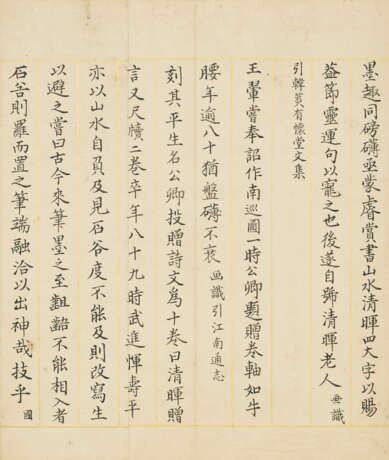 墨趣同磅礴亟蒙睿賞書山水清暉四大字以賜
蓋節靈運句以寵之也後遂自號清暉老人 畫識
引韓菼有懷堂文集
王翬嘗奉詔作南巡圖一時公卿題贈卷軸如牛
腰年逾八十猶盤礴不衰 畫識引江南通志
刻其平生名公卿投贈詩文為十卷曰清暉贈
言又尺牘二卷卒年八十九時武進惲壽平
亦以山水自負及見石谷度不能及則改寫生
以避之嘗曰古今來筆墨之至齟齬不能相入者
石谷則羅而置之筆端融洽以出神哉技乎 國